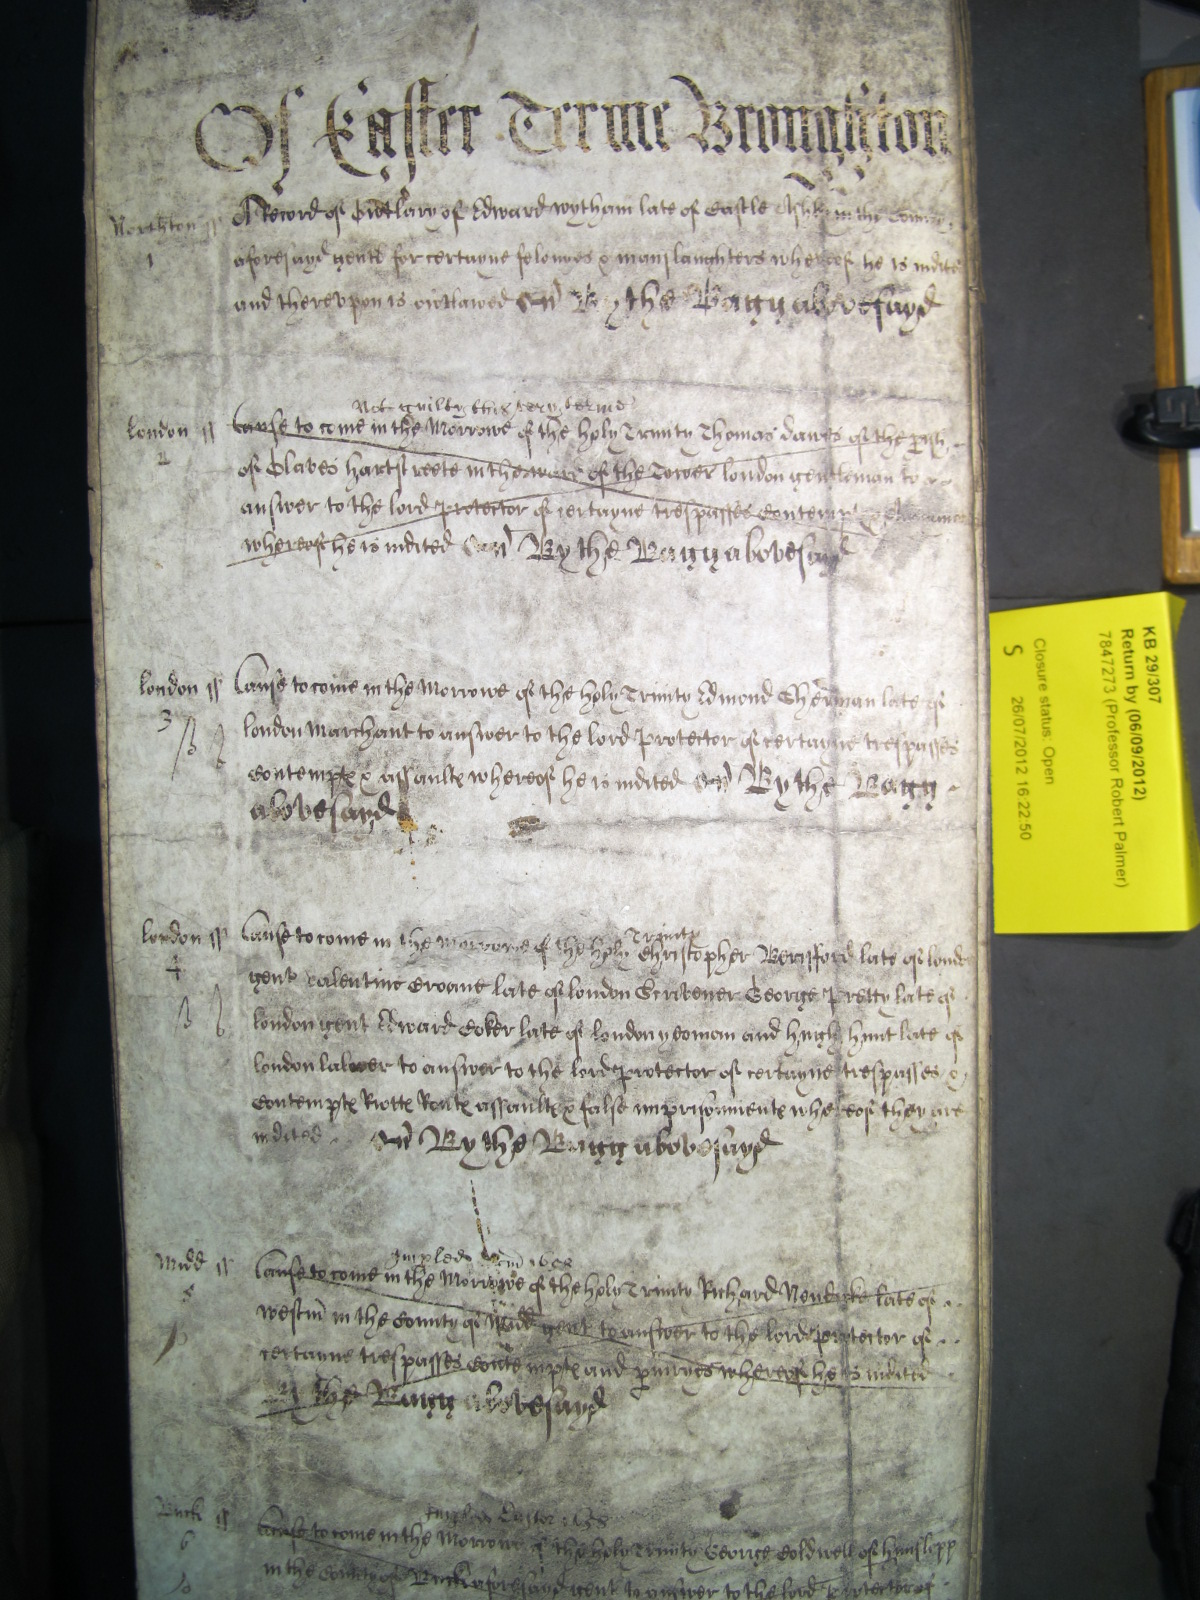 Of Easter Terme Broughton
Northton ss A Record of Outlary of Edward Wytham late of Castle Ashby in the County
1 aforesayd gent for certayne felonyes & manslaughters whereof he is indited
and thereupon is outlawed By the Bagg abovesayd
Not guilty this very terme
London ss Cause to come in the Morrowe of the holy Trinity Thomas Dawes of the
2 of Olaves hartstreete in the ware of the Tower london gentleman to
answer to the lord Protector of certayne trespasses Contempts
whereof he is indited By the Bagg abovesayd
London ss Cause to come in the Morrowe of the holy Trinity Edmond Sherman late of
3 london Marchant to answer to the lord Protector of certayne trespasses
Contempts & assaults whereof he is indited By the Bagg
abovesayd
Trinity
London ss Cause to come in the Morrowe of the holy Christopher late of london
4 gent Valentine Croome late of london Scrivener George Pretty late of
london gent Edward Coker late of london yeoman and hugh hunt late of
london laborer to answer to the lord Protector of certayne trespasses &
Contempts Riotts Routs assaults & false imprisonments whereof they are
indited By the Bagg abovesayd
Midd ss Cause to come in the Morrowe of the holy Trinity Richard late of
5 Westm in the County of Midd gent to answer to the lord Protector of
certayne trespasses Contempts and whereof he is indited
By the Bagg abovesayd
Buck ss Cause to come in the Morrowe of the holy Trinity George Coldwell of hanslapp
6 in the County of Buck aforesayd gent to answer to the lord Protector of
KB 29/307
Return by (06/09/2012)
7847273 (Professor Robert Palmer)
Closure status: Open
S 26/07/2012 16:22:50